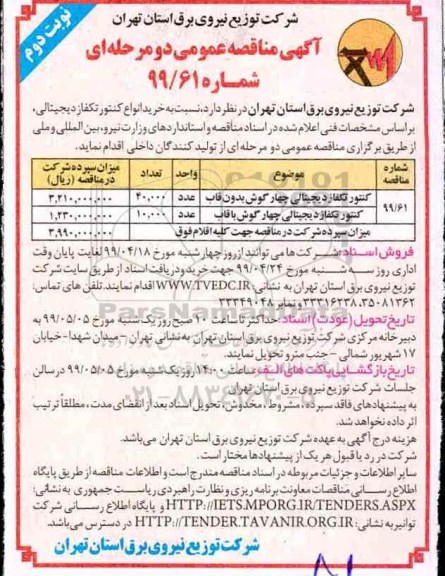 شرکت توزیع نیروی برق استان تهران
نوبت دوم
آگهی مناقصه عمومی دو مرحله ای
شماره ۹۹/۶۱
شرکت توزیع نیروی برق استان تهران در نظر دارد، نسبت به خرید انواع کنتور تکفاز دیجیتالی،
بر اساس مشخصات فنی اعلام شده در اسناد مناقصه و استانداردهای وزارت نیرو، بین المللی و ملی
از طریق برگزاری مناقصه عمومی دو مرحله ای از تولید کنندگان داخلی اقدام نماید.
شماره مناقصه موضوع واحد تعداد میزان سپرده شرکت در مناقصه (ریال)
۹۹/۶۱ کنتور تکفاز دیجیتالی چهار گوش بدون قاب عدد ۴۰,۰۰۰ ۳,۲۱۰,۰۰۰,۰۰۰
کنتور تکفاز دیجیتالی چهار گوش با قاب عدد ۱۰,۰۰۰ ۱,۲۳۰,۰۰۰,۰۰۰
میزان سپرده شرکت در مناقصه جهت کلیه اقلام فوق ۳,۹۹۰,۰۰۰,۰۰۰
فروش اسناد: شرکت ها می توانند از روز چهار شنبه مورخ ۹۹/۰۴/۱۸ لغایت پایان وقت
اداری روز سه شنبه مورخ ۹۹/۰۴/۲۴ جهت خرید و دریافت اسناد از طریق سایت شرکت
توزیع نیروی برق استان تهران به نشانی: WWW.TVEDC.IR اقدام نمایند. تلفن های تماس:
۳۵۰۸۱۳۶۲، ۳۳۳۱۶۲۳۸ و نمابر ۳۳۳۴۹۰۴۸
تاریخ تحویل (عودت) اسناد: حداکثر تا ساعت ۱۰ صبح روز یک شنبه مورخ ۹۹/۰۵/۰۵ به
دبیرخانه مرکزی شرکت توزیع نیروی برق استان تهران به نشانی تهران - میدان شهدا- خیابان
۱۷ شهریور شمالی - جنب مترو تحویل نمایند.
تاریخ بازگشایی پاکت های الف: ساعت ۱۴:۰۰ روز یک شنبه مورخ ۹۹/۰۵/۰۵ در سالن
جلسات شرکت توزیع نیروی برق استان تهران
به پیشنهادهای فاقد سپرده، مشروط، مخدوش، تحویل اسناد بعد از انقضای مدت، مطلقاً ترتیب
اثر داده نخواهد شد.
هزینه درج آگهی به عهده شرکت توزیع نیروی برق استان تهران می باشد.
شرکت در رد یا قبول هر یک از پیشنهادها مختار است.
سایر اطلاعات و جزئیات مربوطه در اسناد مناقصه مندرج است و اطلاعات مناقصه از طریق پایگاه
اطلاع رسانی مناقصات معاونت برنامه ریزی و نظارت راهبردی ریاست جمهوری به نشانی:
HTTP://IETS.MPORG.IR/TENDERS.ASPX و پایگاه اطلاع رسانی شرکت
توانیر به نشانی: HTTP://TENDER.TAVANIR.ORG.IR در دسترس می باشد.
شرکت توزیع نیروی برق استان تهران